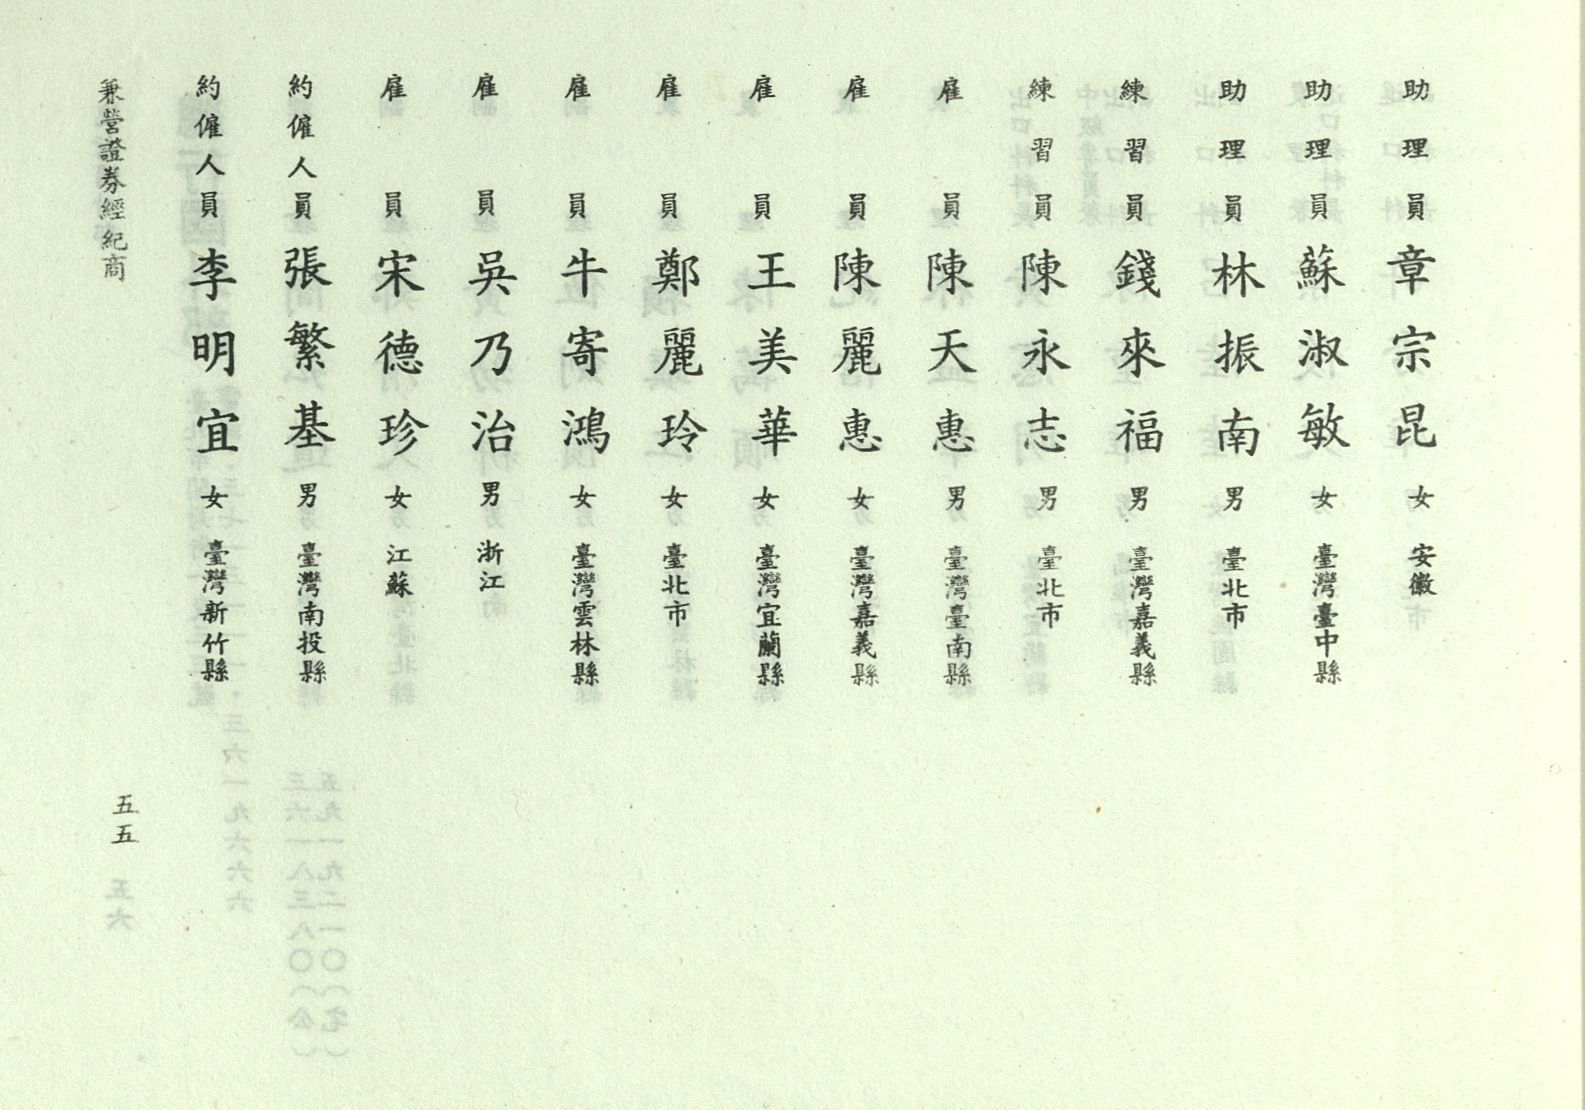 助理員章宗昆女安徽
助理員蘇淑敏女臺灣臺中縣
助理員林振南男臺北市
練習員錢來福男臺灣嘉義縣
練習員陳永志男臺北市
雇員陳天惠男臺灣臺南縣
雇員陳麗惠女臺灣嘉義縣
雇員王美華女臺灣宜蘭縣
雇員鄭麗玲女臺北市
雇員牛寄鴻女臺灣雲林縣
雇員吳乃治男浙江
雇員宋德珍女江蘇
約僱人員張繁基男臺灣南投縣
約僱人員李明宜女臺灣新竹縣
兼營證券經紀商
五五